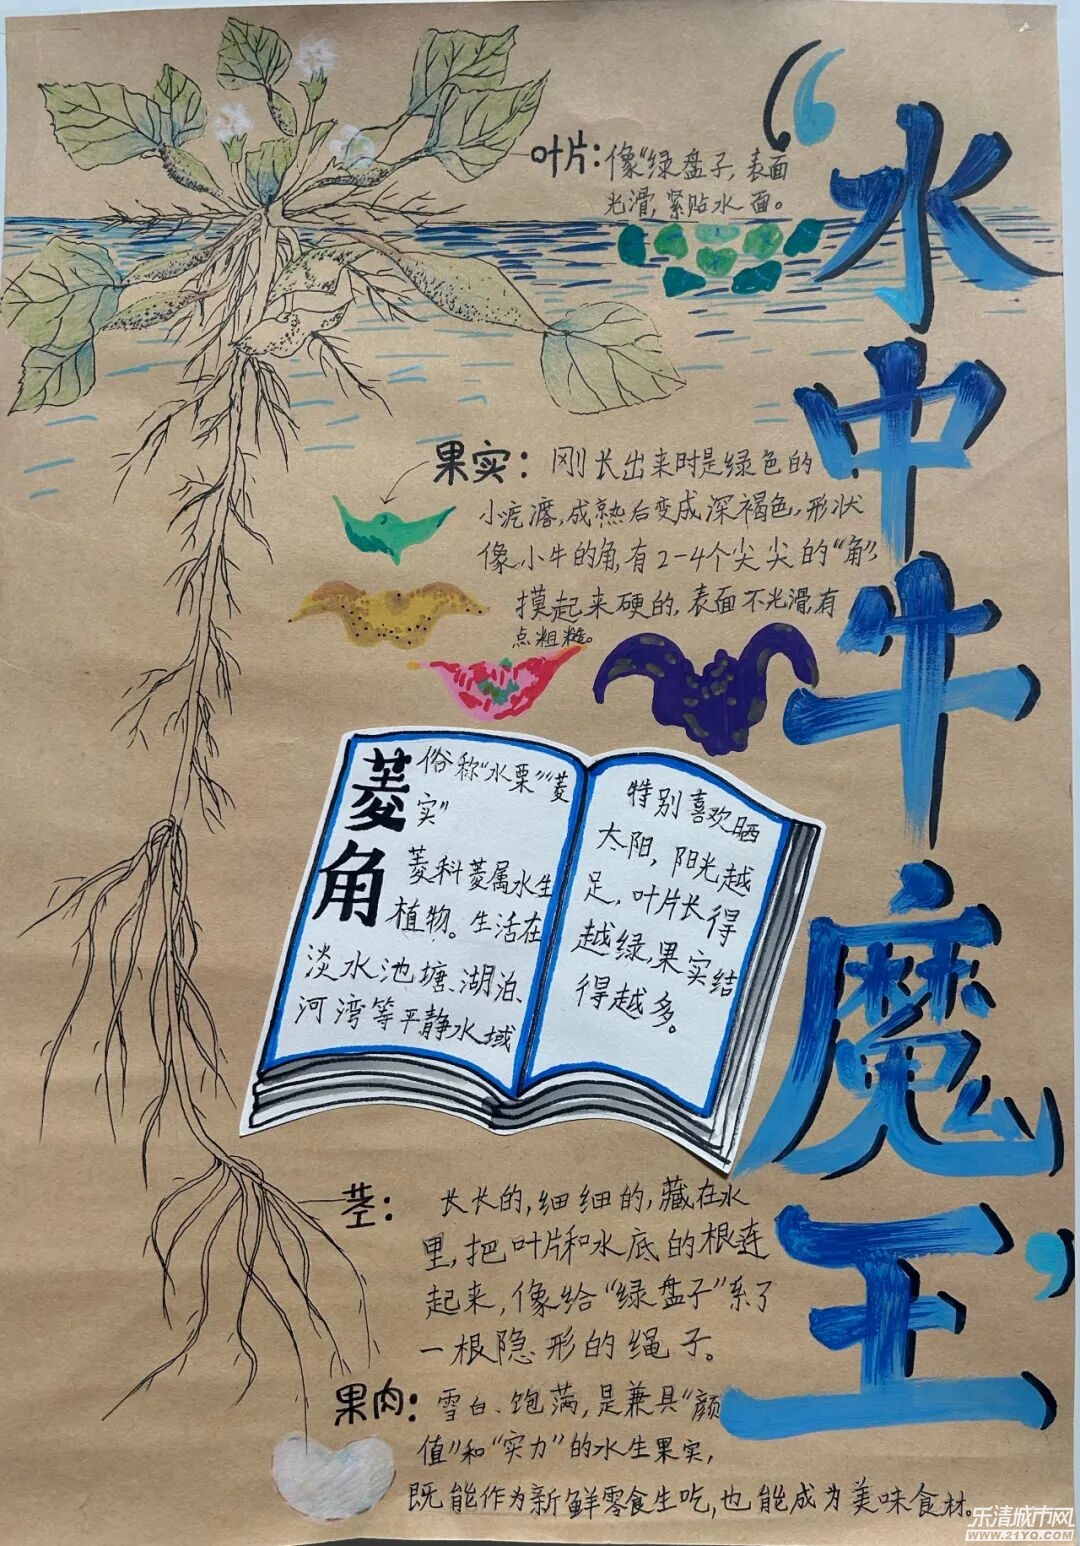 “水中牛魔王”
叶片：像“绿盘子，表面
光滑，紧贴水面。
果实：刚长出来时是绿色的
小疙瘩，成熟后变成深褐色，形状
像小牛的角，有2-4个尖尖的“角”，
摸起来硬的，表面不光滑，有
点粗糙。
菱角
俗称“水栗”“菱
实”
菱科菱属水生
植物。生活在
淡水池塘、湖泊、
河湾等平静水域
特别喜欢晒
太阳，阳光越
足，叶片长得
越绿，果实结
得越多。
茎：长长的，细细的，藏在水
里，把叶片和水底的根连
起来，像给“绿盘子”系了
一根隐形的绳子。
果肉：雪白、饱满，是兼具“颜
值”和“实力”的水生果实，
既能作为新鲜零食生吃，也能成为美味食材。
乐清城市网
WWW.21YQ.COM